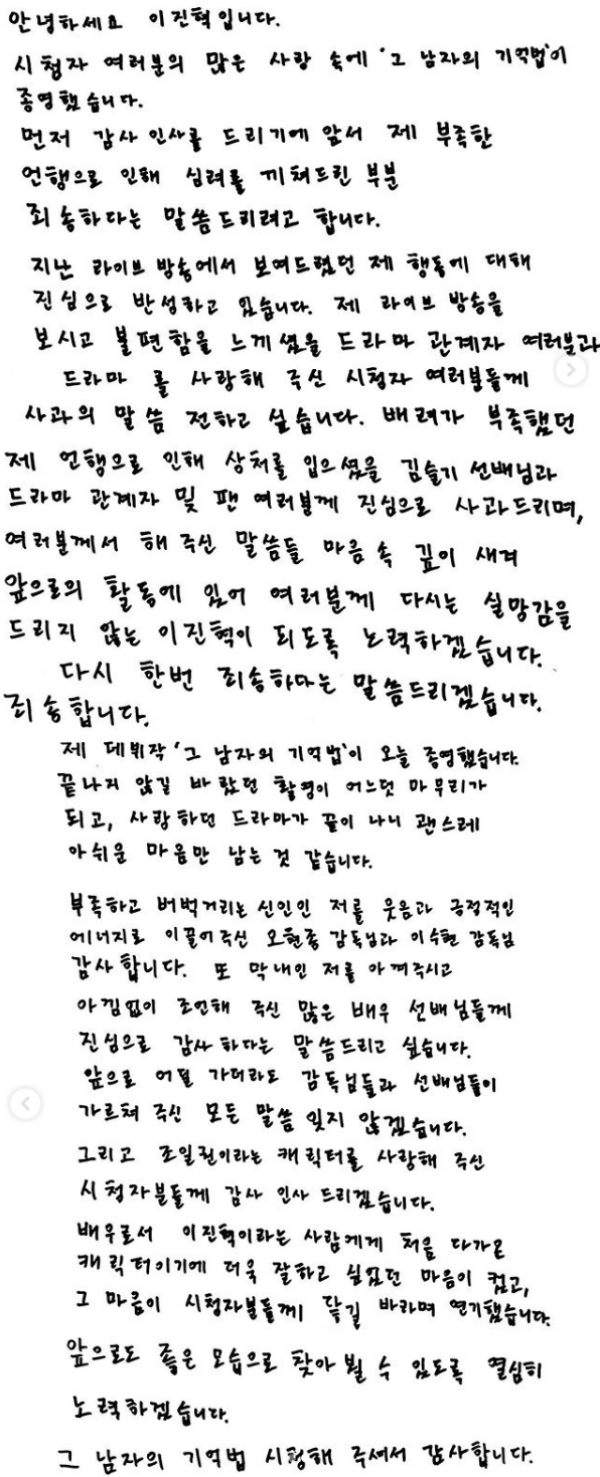 안녕하세요 이진혁입니다.
시청자 여러분의 많은 사랑 속에 '그 남자의 기억법'이
종영했습니다.
먼저 감사 인사를 드리기에 앞서 제 부족한
언행으로 인해 심려를 끼쳐드린 부분
죄송하다는 말씀드리려고 합니다.
지난 라이브 방송에서 보여드렸던 제 행동에 대해
진심으로 반성하고 있습니다. 제 라이브 방송을
보시고 불편함을 느끼셨을 드라마 관계자 여러분과
드라마 를 사랑해 주신 시청자 여러분들께
사과의 말씀 전하고 싶습니다. 배려가 부족했던
제 언행으로 인해 상처를 입으셨을 김슬기 선배님과
드라마 관계자 및 팬 여러분께 진심으로 사과드리며,
여러분께서 해 주신 말씀들 마음 속 깊이 새겨
앞으로의 활동에 있어 여러분께 다시는 실망감을
드리지 않는 이진혁이 되도록 노력하겠습니다.
다시 한번 죄송하다는 말씀드리겠습니다.
죄송합니다.
제 데뷔작 '그 남자의 기억법'이 오늘 종영했습니다.
끝나지 않길 바랐던 촬영이 어느덧 마무리가
되고, 사랑하던 드라마가 끝이 나니 괜스레
아쉬운 마음만 남는 것 같습니다.
부족하고 버벅거리는 신인인 저를 웃음과 긍정적인
에너지로 이끌어주신 오현종 감독님과 이수현 감독님
감사합니다. 또 막내인 저를 아껴주시고
아낌없이 조언해 주신 많은 배우 선배님들께
진심으로 감사하다는 말씀드리고 싶습니다.
앞으로 어딜 가더라도 감독님들과 선배님들이
가르쳐 주신 모든 말씀 잊지 않겠습니다.
그리고 조일권이라는 캐릭터를 사랑해 주신
시청자분들께 감사 인사 드리겠습니다.
배우로서 이진혁이라는 사람에게 처음 다가온
캐릭터이기에 더욱 잘하고 싶었던 마음이 컸고,
그 마음이 시청자분들께 닿길 바라며 연기했습니다.
앞으로도 좋은 모습으로 찾아 뵐 수 있도록 열심히
노력하겠습니다.
그 남자의 기억법 시청해 주셔서 감사합니다.